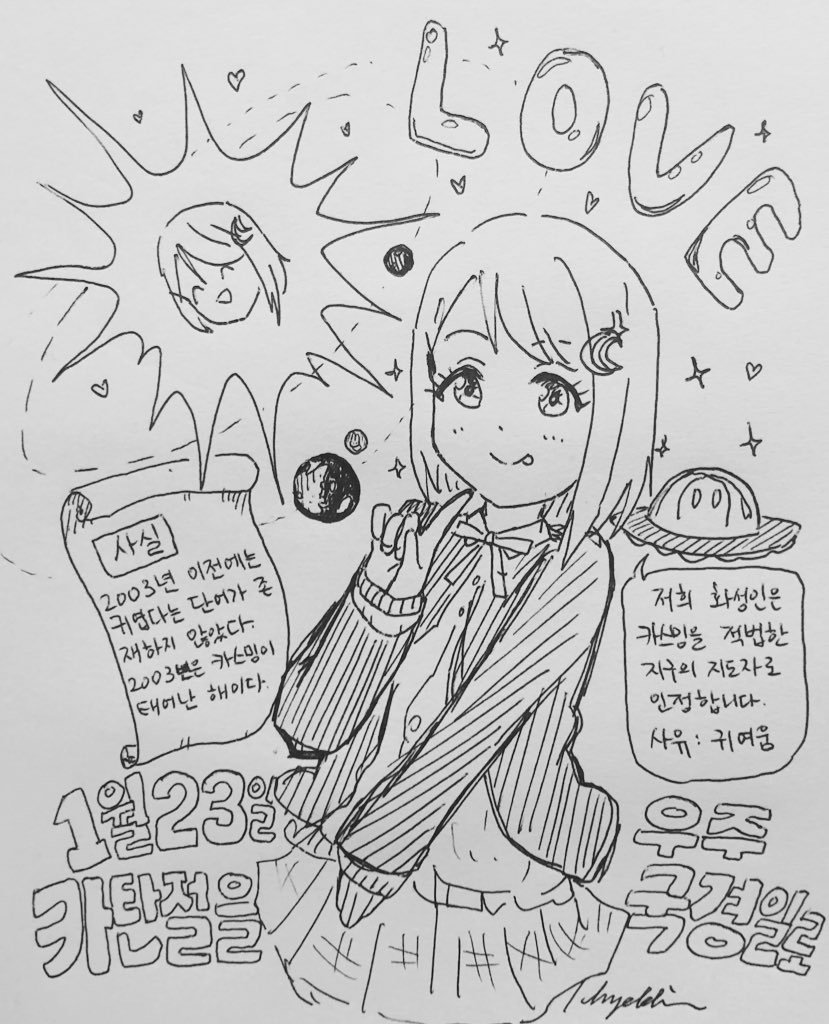 LOVE
사실
2003년 이전에는
귀엽다는 단어가 존
재하지 않았다.
2003년은 카스밍이
태어난 해이다.
저희 화성인은
카스밍을 적법한
지구의 지도자로
인정합니다.
사유: 귀여움
1월 23일
카탄절을
우주
국경일로